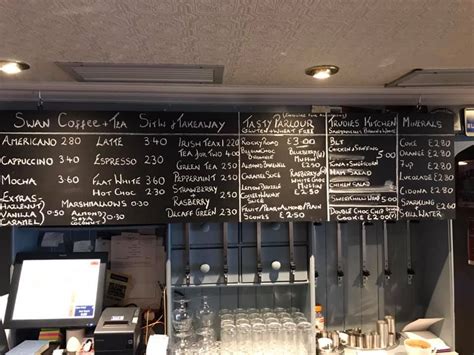 SWAN COFFEE + TEA SIT IN / TAKEAWAY
AMERICANO 2.80 LATTE 3.40
CAPPUCCINO 3.60 ESPRESSO 2.30
MOCHA 3.60 FLAT WHITE 3.60
HOT CHOC 2.30
EXTRAS- MARSHMALLOWS 0.30
VANILLA ALMOND 0.50
CARAMEL SOYA
COCONUT
IRISH TEA X1 2.20
TEA FOR TWO
GREEN TEA 2.30
PEPPERMINT 2.30
STRAWBERRY 2.30
RASBERRY 2.30
DECAFF GREEN 2.30
TASTY PARLOUR
GLUTEN + WHEAT FREE
ROCKY ROAD £3.00
ALMOND BAKEWELL
BLUEBERRY MUFFIN
CARAMEL SLICE
LEMON DRIZZLE
RASBERRY MUFFIN
FRUIT/PEAR/ALMOND/PLAIN
SCONES £2.50
TRUDIES KITCHEN
BLT
CHICKEN STUFFING
TUNA + SWEETCORN
HAM SALAD
CHICKEN SALAD
DOUBLE CHOC CHIP
COOKIE £2.00
MINERALS
COKE £2.80
ORANGE £2.80
7UP £2.80
LUCOZADE £2.80
CIDONA £2.80
SPARKLING £2.50
STILL WATER